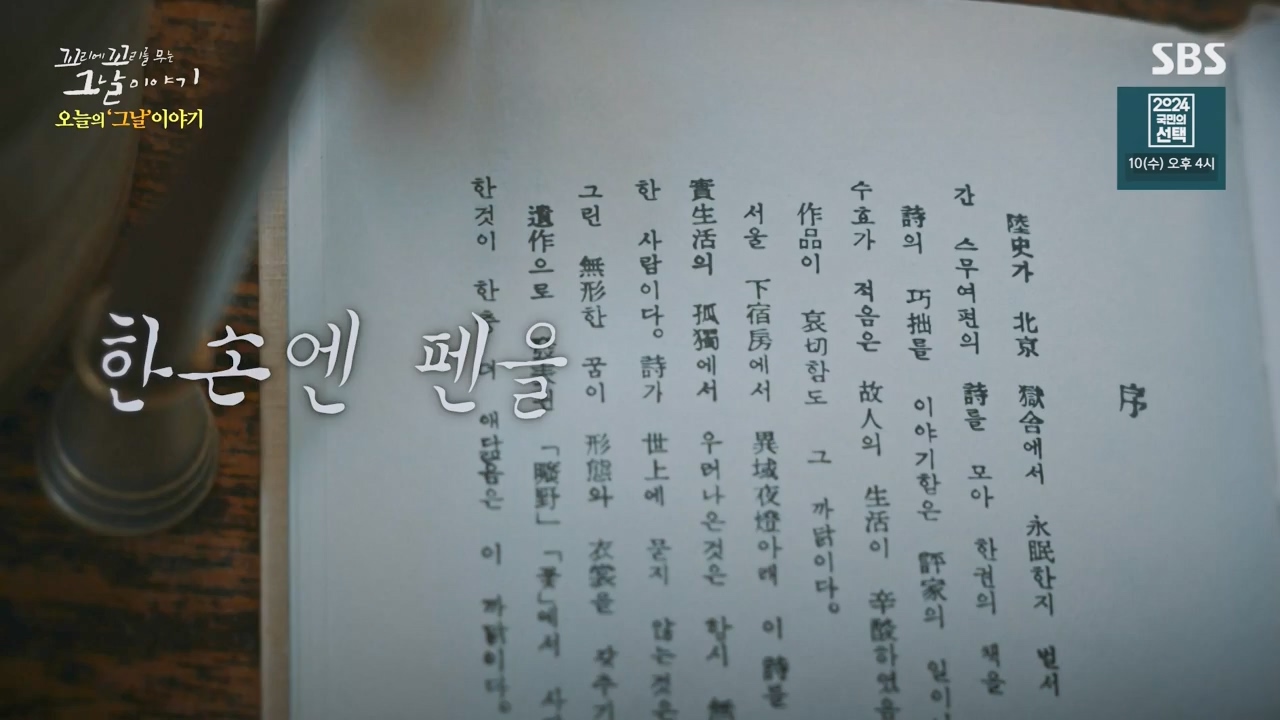 꼬리에 꼬리를 무는
그날 이야기
오늘의 '그날' 이야기
SBS
2024
국민의
선택
10(수) 오후 4시
한 손엔 펜을
序
陸史가 北京 獄舍에서 永眠한지 벌서
간 스무여편의 詩를 모아 한권의 책을
詩의 巧拙를 이야기함은 評家의 일이
수효가 적음은 故人의 生活이 辛酸하였음
作品이 哀切함도 그 까닭이다。
서울 下宿房에서 異域夜燈아래 이 詩를
實生活의 孤獨에서 우러나온것은 항시 無
한 사람이다。 詩가 世上에 묻지 않는것은
그런 無形한 꿈이 形態와 衣裳을 갖추기
遺作으로 「曠野」 「꽃」에서 사
한것이 한층 애달픔은 이 까닭이다。